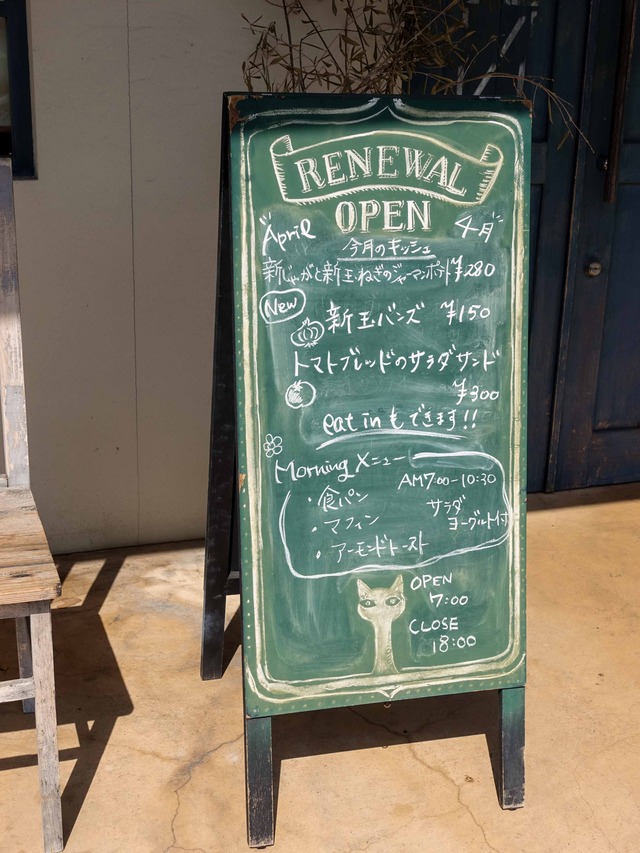 RENEWAL
OPEN
April 4月
今月のキッシュ
新じゃがと新玉ねぎのジャーマンポテト ¥280
New 新玉バンズ ¥150
トマトブレッドのサラダサンド
¥300
eat in もできます!!
Morningメニュー
AM7:00-10:30
・食パン
サラダ
ヨーグルト付
・マフィン
・アーモンドトースト
OPEN
7:00
CLOSE
18:00